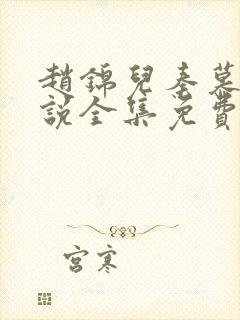 趙錦兒秦慕
說全集免費
宮寒